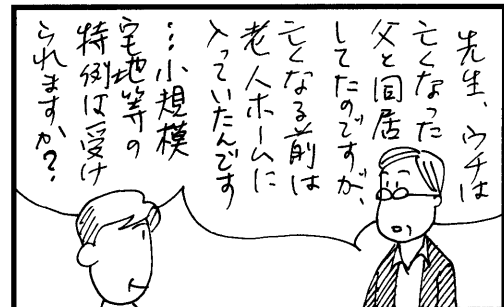 先生、ウチは
亡くなった
父と同居
してたのですが、
亡くなる前は
老人ホームに
入っていたんです
…小規模
宅地等の
特例は受け
られますか?